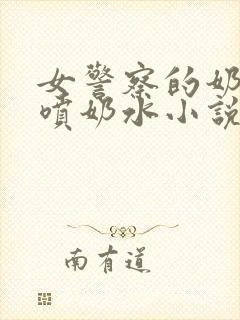 女警察的奶
喷奶水小說
南有道